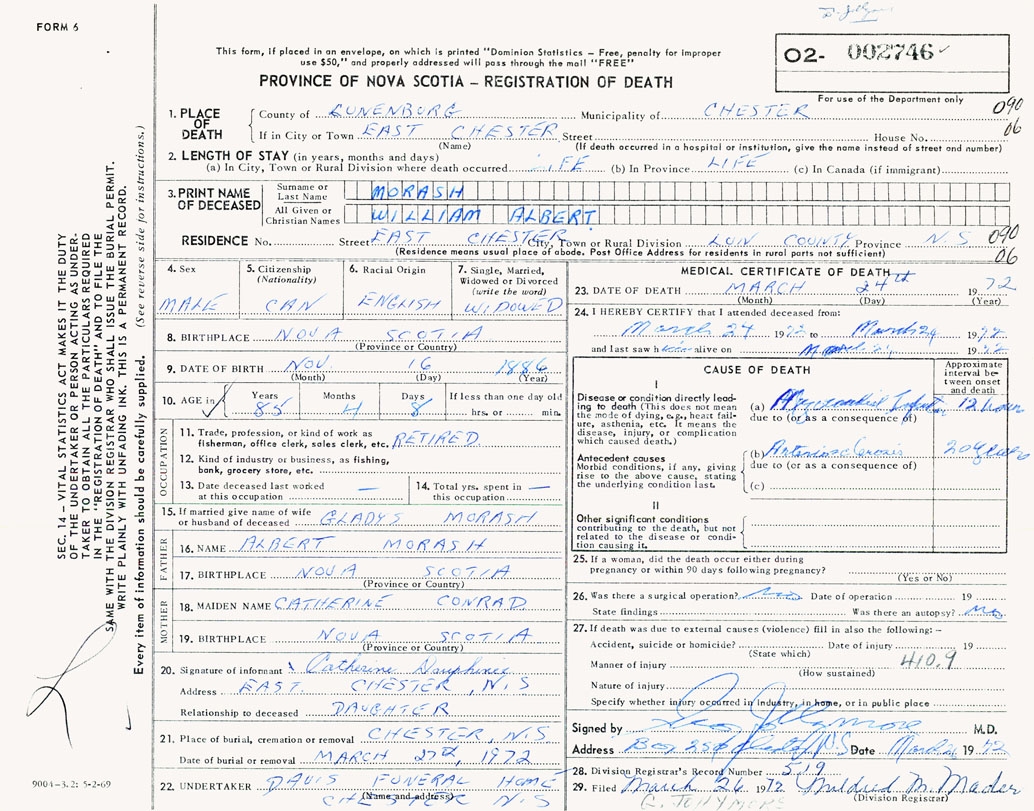 FORM 6
This form, if placed in an envelope, on which is printed "Dominion Statistics – Free, penalty for improper
use $50," and properly addressed will pass through the mail "FREE"
PROVINCE OF NOVA SCOTIA – REGISTRATION OF DEATH
02- 002746
For use of the Department only
090
06
1. PLACE OF DEATH
County of LUNENBURG Municipality of CHESTER
If in City or Town EAST CHESTER Street House No.
(Name) (If death occurred in a hospital or institution, give the name instead of street and number)
2. LENGTH OF STAY (in years, months and days)
(a) In City, Town or Rural Division where death occurred LIFE (b) In Province LIFE (c) In Canada (if immigrant)
3. PRINT NAME OF DECEASED
Surname or Last Name MORASH
All Given or Christian Names WILLIAM ALBERT
RESIDENCE No. Street EAST CHESTER City, Town or Rural Division LUN COUNTY Province N.S 090
(Residence means usual place of abode. Post Office Address for residents in rural parts not sufficient) 06
4. Sex MALE
5. Citizenship (Nationality) CAN
6. Racial Origin ENGLISH
7. Single, Married, Widowed or Divorced (write the word) WIDOWED
8. BIRTHPLACE NOVA SCOTIA
(Province or Country)
9. DATE OF BIRTH NOV. 16 1886
(Month) (Day) (Year)
10. AGE in Years 85 Months 4 Days 8 If less than one day old hrs. or min.
OCCUPATION
11. Trade, profession, or kind of work as
fisherman, office clerk, sales clerk, etc. RETIRED
12. Kind of industry or business, as fishing,
bank, grocery store, etc.
13. Date deceased last worked
at this occupation —
14. Total yrs. spent in
this occupation —
15. If married give name of wife
or husband of deceased GLADYS MORASH
FATHER
16. NAME ALBERT MORASH
17. BIRTHPLACE NOVA SCOTIA
(Province or Country)
MOTHER
18. MAIDEN NAME CATHERINE CONRAD
19. BIRTHPLACE NOVA SCOTIA
(Province or Country)
20. Signature of informant Catherine Dauphinee
Address EAST CHESTER, N.S
Relationship to deceased DAUGHTER
21. Place of burial, cremation or removal CHESTER, N.S
Date of burial or removal MARCH 27th, 1972
22. UNDERTAKER DAVIS FUNERAL HOME
(Name and address) CHESTER N.S
MEDICAL CERTIFICATE OF DEATH
23. DATE OF DEATH MARCH 24th 1972
(Month) (Day) (Year)
24. I HEREBY CERTIFY that I attended deceased from:
March 24 1972 to March 24 1972
and last saw him alive on 1972
CAUSE OF DEATH
Approximate interval between onset and death
I
Disease or condition directly leading
to death (This does not mean
the mode of dying, e.g., heart failure,
asthenia, etc. It means the
disease, injury, or complication
which caused death.)
(a) Myocardial Infarction 12 hours
due to (or as a consequence of)
Antecedent causes
Morbid conditions, if any, giving
rise to the above cause, stating
the underlying condition last.
(b) Arteriosclerosis 20 years
due to (or as a consequence of)
(c)
II
Other significant conditions
contributing to the death, but not
related to the disease or condition
causing it.
25. If a woman, did the death occur either during
pregnancy or within 90 days following pregnancy?
(Yes or No)
26. Was there a surgical operation? no Date of operation 19
State findings Was there an autopsy? no
27. If death was due to external causes (violence) fill in also the following: –
Accident, suicide or homicide? Date of injury 19
(State which) 410.9
Manner of injury
(How sustained)
Nature of injury
Specify whether injury occurred in industry, in home, or in public place
Signed by M.D.
Address Box Date March 1972
28. Division Registrar's Record Number 519
29. Filed March 26 1972 Mildred M. Mader
(Division Registrar)
SEC. 14 – VITAL STATISTICS ACT MAKES IT THE DUTY
OF THE UNDERTAKER OR PERSON ACTING AS UNDER-
TAKER TO OBTAIN ALL THE PARTICULARS REQUIRED
IN THE "REGISTRATION OF DEATH" AND TO FILE THE
SAME WITH THE DIVISION REGISTRAR WHO SHALL ISSUE THE BURIAL PERMIT.
WRITE PLAINLY WITH UNFADING INK. THIS IS A PERMANENT RECORD.
Every item of information should be carefully supplied. (See reverse side for instructions.)
9004-3.2: 5-2-69